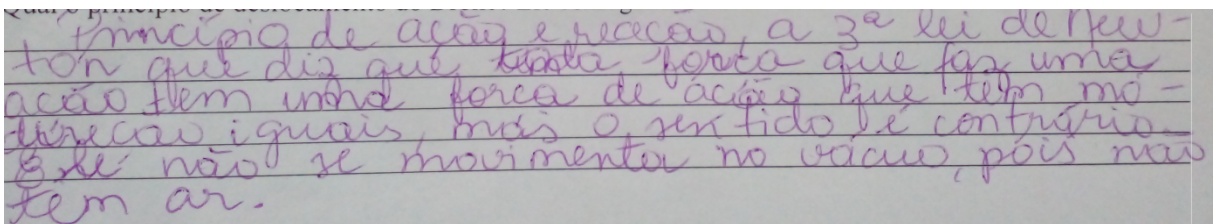 Princípio de ação e reação, a 3ª lei de New-
ton que diz que toda força que faz uma
ação tem uma força de ação que têm mó-
direção iguais, mas o sentido é contrário.
Ele não se movimenta no vácuo, pois não
tem ar.